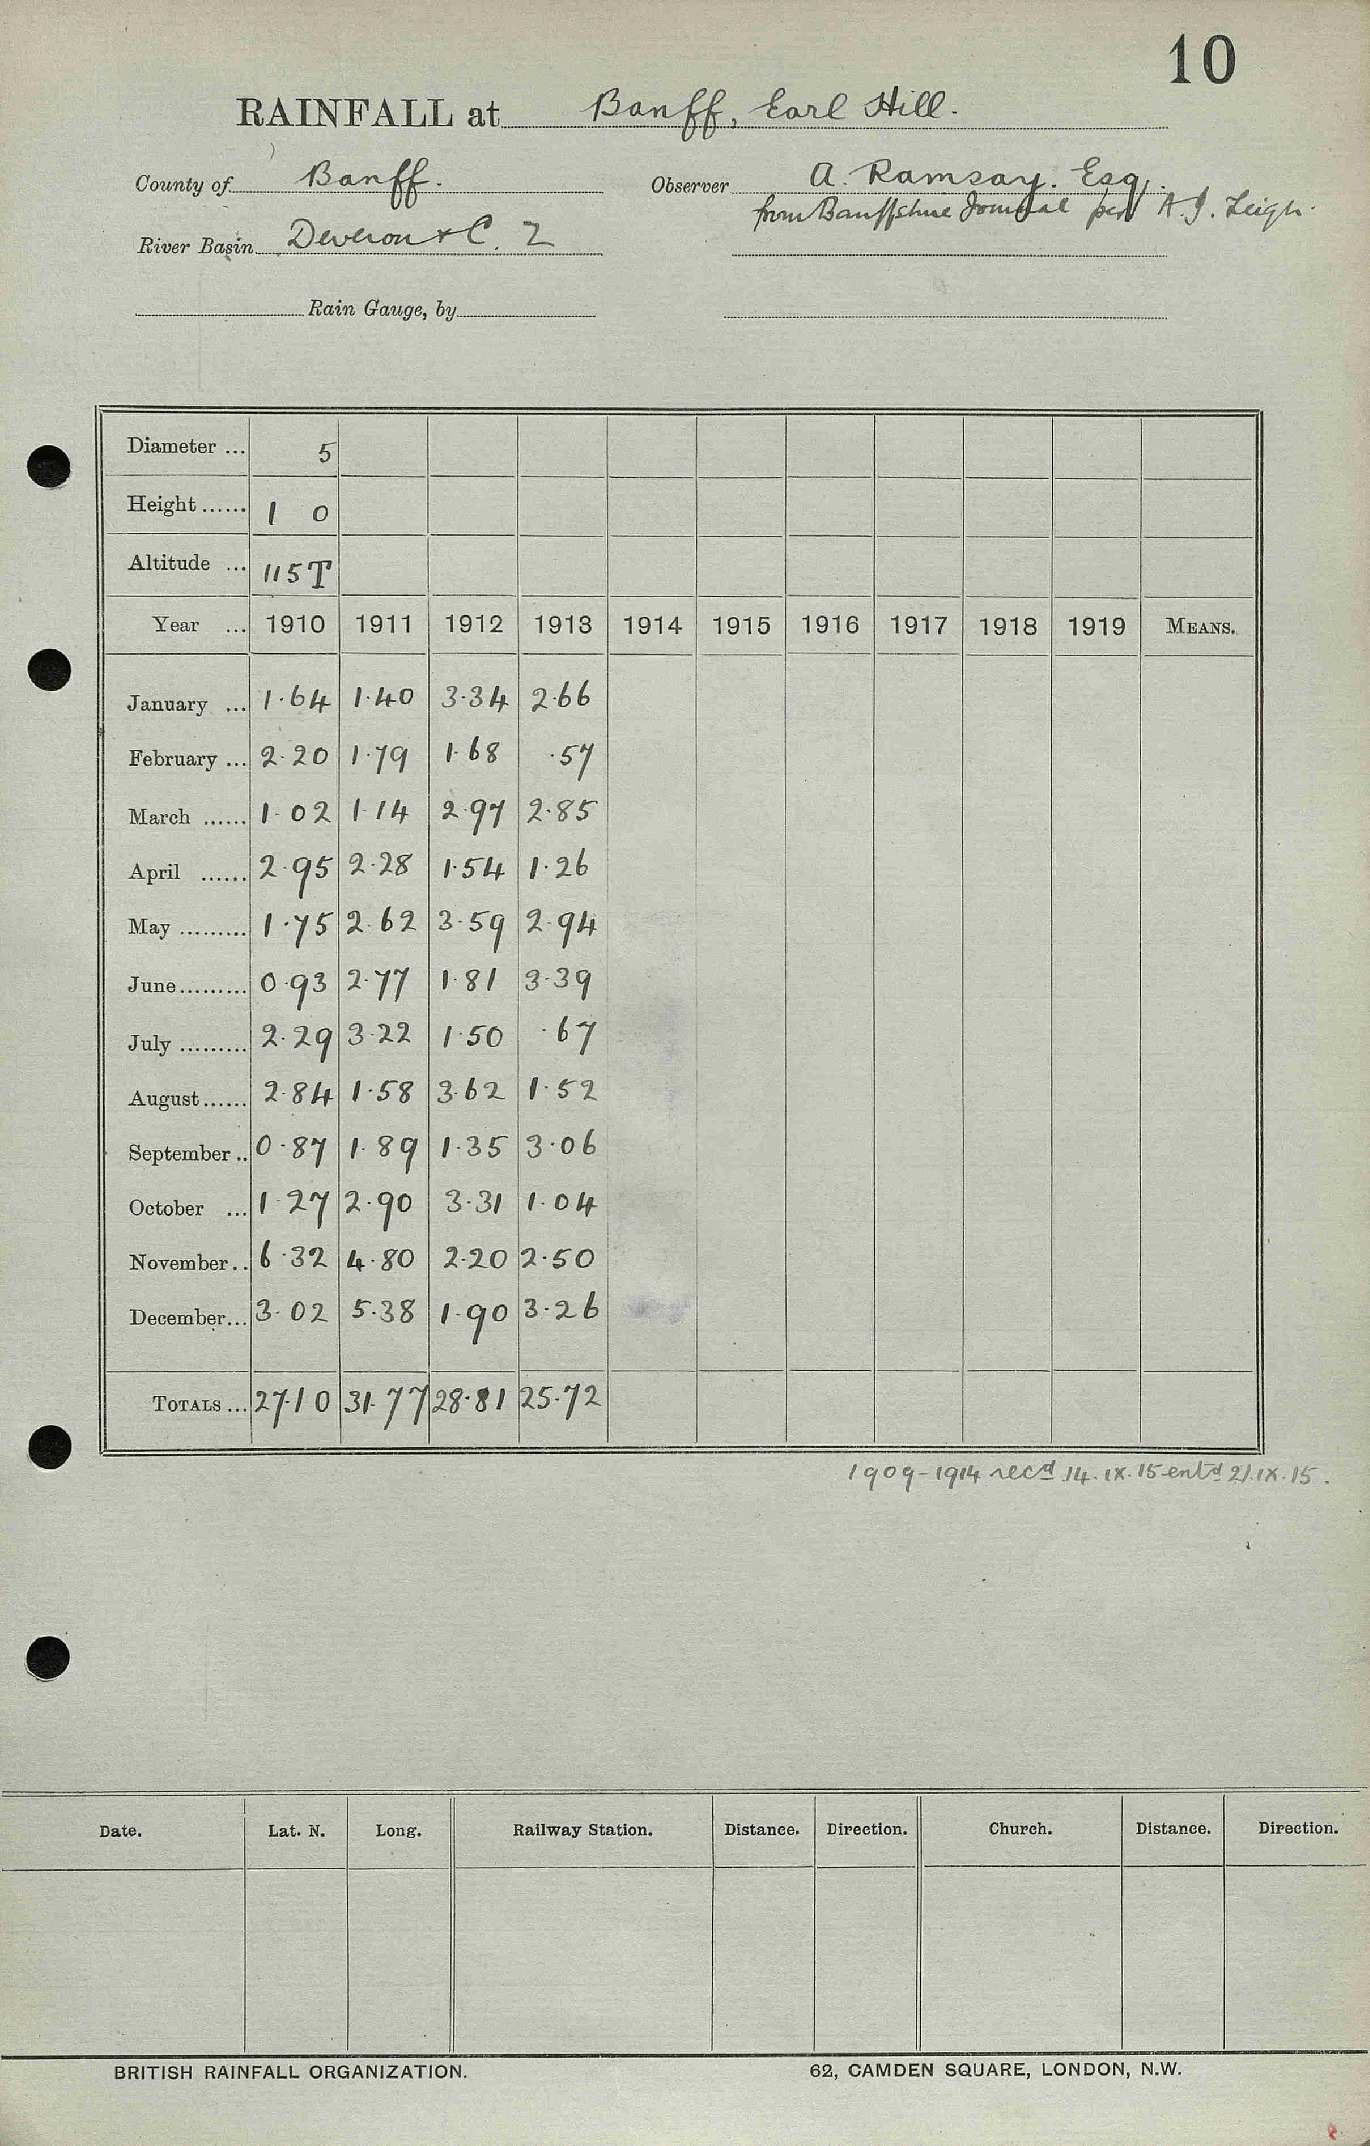 10
RAINFALL at Banff, Earl Hill.
County of Banff. Observer A. Ramsay. Esq.
from Banffshire Journal per A. J. Leigh.
River Basin Deveron & C. 2
Rain Gauge, by
Diameter ... 5
Height ...... 1 0
Altitude ... 115T
Year ... 1910 1911 1912 1913 1914 1915 1916 1917 1918 1919 MEANS.
January ... 1.64 1.40 3.34 2.66
February ... 2.20 1.79 1.68 .57
March ...... 1.02 1.14 2.97 2.85
April ...... 2.95 2.28 1.54 1.26
May ......... 1.75 2.62 3.59 2.94
June......... 0.93 2.77 1.81 3.39
July ......... 2.29 3.22 1.50 .67
August...... 2.84 1.58 3.62 1.52
September.. 0.87 1.89 1.35 3.06
October ... 1.27 2.90 3.31 1.04
November.. 6.32 4.80 2.20 2.50
December... 3.02 5.38 1.90 3.26
TOTALS ... 27.10 31.77 28.81 25.72
1909-1914 recd 14.IX.15 entd 21.IX.15.
Date. Lat. N. Long. Railway Station. Distance. Direction. Church. Distance. Direction.
BRITISH RAINFALL ORGANIZATION. 62, CAMDEN SQUARE, LONDON, N.W.